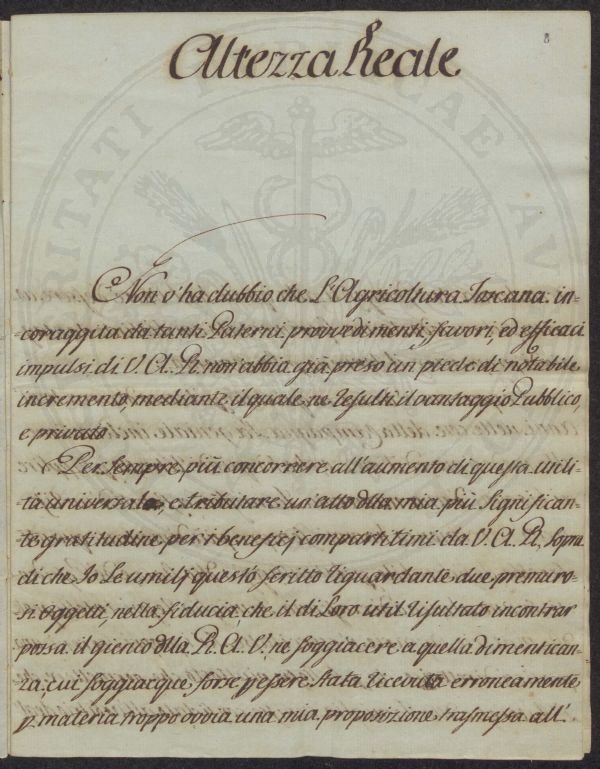 8
Altezza Reale
Non v'ha dubbio che L'Agricoltura Toscana in-
-coraggita da tanti Paterni provvedimenti, favori, ed efficaci
impulsi di V. A. R. non abbia già preso un piede di notabile
incremento, mediante il quale ne resulti il vantaggio Pubblico,
e privato
Per sempre più concorrere all'aumento di questa utili-
tà universale, e tributare un atto dlla mia più significan-
te gratitudine per i beneficj compartitimi da V. A. R. sopra
di che Io Le umilj questo scritto riguardante due premuro-
si oggetti, nella fiducia, che il di Loro util risultato incontrar
possa il gienio dlla R. A. V. ne soggiacere a quella dimentican-
za cui soggiacque forse p essere stata ricevuta erroneamente
p materia troppo ovvia una mia proposizione trasmessa all'
RITATI PUBLICAE AU